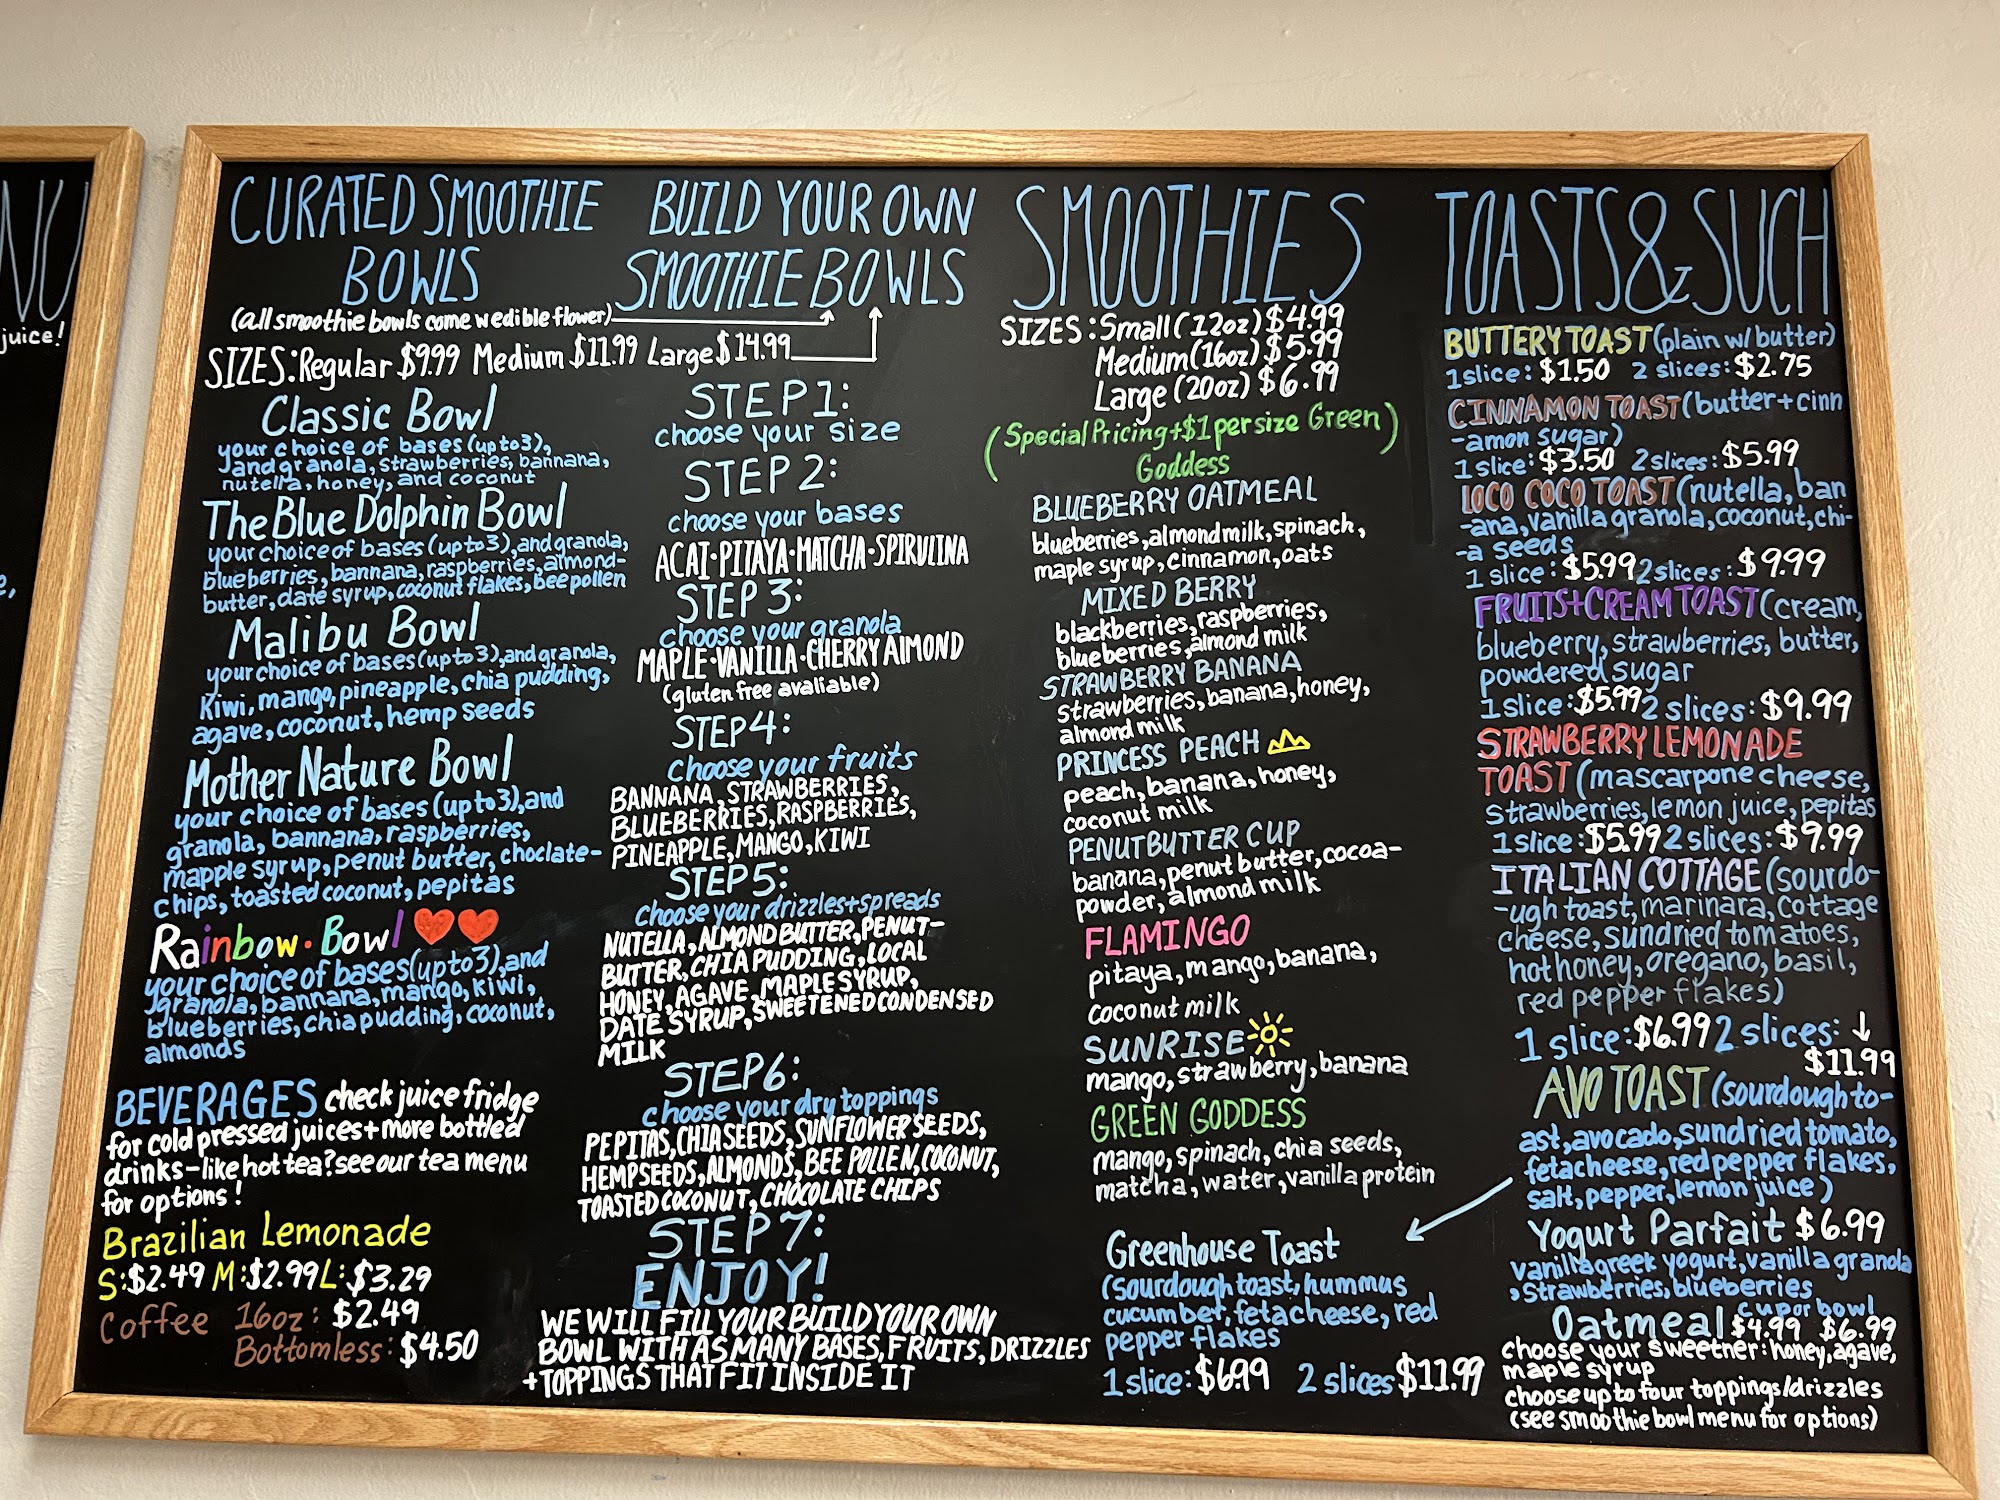 NU
juice!
CURATED SMOOTHIE
BOWLS
(all smoothie bowls come w edible flower)
SIZES: Regular $9.99 Medium $11.99 Large $14.99
Classic Bowl
your choice of bases (up to 3),
and granola, strawberries, bannana,
nutella, honey, and coconut
The Blue Dolphin Bowl
your choice of bases (up to 3), and granola,
blueberries, bannana, raspberries, almond-
butter, date syrup, coconut flakes, bee pollen
Malibu Bowl
your choice of bases (up to 3), and granola,
Kiwi, mango, pineapple, chia pudding,
agave, coconut, hemp seeds
Mother Nature Bowl
your choice of bases (up to 3), and
granola, bannana, raspberries,
mapple syrup, penut butter, choclate-
chips, toasted coconut, pepitas
Rainbow • Bowl
your choice of bases (up to 3), and
granola, bannana, mango, kiwi,
blueberries, chia pudding, coconut,
almonds
BEVERAGES check juice fridge
for cold pressed juices + more bottled
drinks - like hot tea? see our tea menu
for options!
Brazilian Lemonade
S: $2.49 M: $2.99 L: $3.29
Coffee 16oz: $2.49
Bottomless: $4.50
BUILD YOUR OWN
SMOOTHIE BOWLS
STEP 1:
choose your size
STEP 2:
choose your bases
ACAI • PITAYA • MATCHA • SPIRULINA
STEP 3:
choose your granola
MAPLE • VANILLA • CHERRY AlMOND
(gluten free avaliable)
STEP 4:
choose your fruits
BANNANA, STRAWBERRIES,
BLUEBERRIES, RASPBERRIES,
PINEAPPLE, MANGO, KIWI
STEP 5:
choose your drizzles + spreads
NUTELLA, ALMOND BUTTER, PENUT-
BUTTER, CHIA PUDDING, LOCAL
HONEY, AGAVE, MAPLE SYRUP,
DATE SYRUP, SWEETENED CONDENSED
MILK
STEP 6:
choose your dry toppings
PEPITAS, CHIA SEEDS, SUNFLOWER SEEDS,
HEMPSEEDS, ALMONDS, BEE POLLEN, COCONUT,
TOASTED COCONUT, CHOCOLATE CHIPS
STEP 7:
ENJOY!
WE WILL FILL YOUR BUILD YOUR OWN
BOWL WITH AS MANY BASES, FRUITS, DRIZZLES
+ TOPPINGS THAT FIT INSIDE IT
SMOOTHIES
SIZES: Small (12oz) $4.99
Medium (16oz) $5.99
Large (20oz) $6.99
(Special Pricing +$1 per size Green)
Goddess
BLUEBERRY OATMEAL
blueberries, almond milk, spinach,
maple syrup, cinnamon, oats
MIXED BERRY
blackberries, raspberries,
blueberries, almond milk
STRAWBERRY BANANA
strawberries, banana, honey,
almond milk
PRINCESS PEACH
peach, banana, honey,
coconut milk
PENUTBUTTER CUP
banana, penut butter, cocoa-
powder, almond milk
FLAMINGO
pitaya, mango, banana,
coconut milk
SUNRISE
mango, strawberry, banana
GREEN GODDESS
mango, spinach, chia seeds,
matcha, water, vanilla protein
Greenhouse Toast
(sourdough toast, hummus
cucumber, feta cheese, red
pepper flakes
1 slice: $6.99 2 slices $11.99
TOASTS & SUCH
BUTTERY TOAST (plain w/ butter)
1 slice: $1.50 2 slices: $2.75
CINNAMON TOAST (butter + cinn
-amon sugar)
1 slice: $3.50 2 slices: $5.99
lOCO COCO TOAST (nutella, ban
-ana, vanilla granola, coconut, chi-
-a seeds
1 slice: $5.99 2 slices: $9.99
FRUITS + CREAM TOAST (cream,
blueberry, strawberries, butter,
powdered sugar
1 slice: $5.99 2 slices: $9.99
STRAWBERRY LEMONADE
TOAST (mascarpone cheese,
strawberries, lemon juice, pepitas
1 slice: $5.99 2 slices: $9.99
ITALIAN COTTAGE (sourdo-
-ugh toast, marinara, cottage
cheese, sundried tomatoes,
hot honey, oregano, basil,
red pepper flakes)
1 slice: $6.99 2 slices:
$11.99
AVO TOAST (sourdough to-
ast, avocado, sundried tomato,
feta cheese, red pepper flakes,
salt, pepper, lemon juice)
Yogurt Parfait $6.99
vanilla greek yogurt, vanilla granola
, strawberries, blueberries
cup or bowl
Oatmeal $4.99 $6.99
choose your sweetner: honey, agave,
maple syrup
choose up to four toppings/drizzles
(see smoothie bowl menu for options)